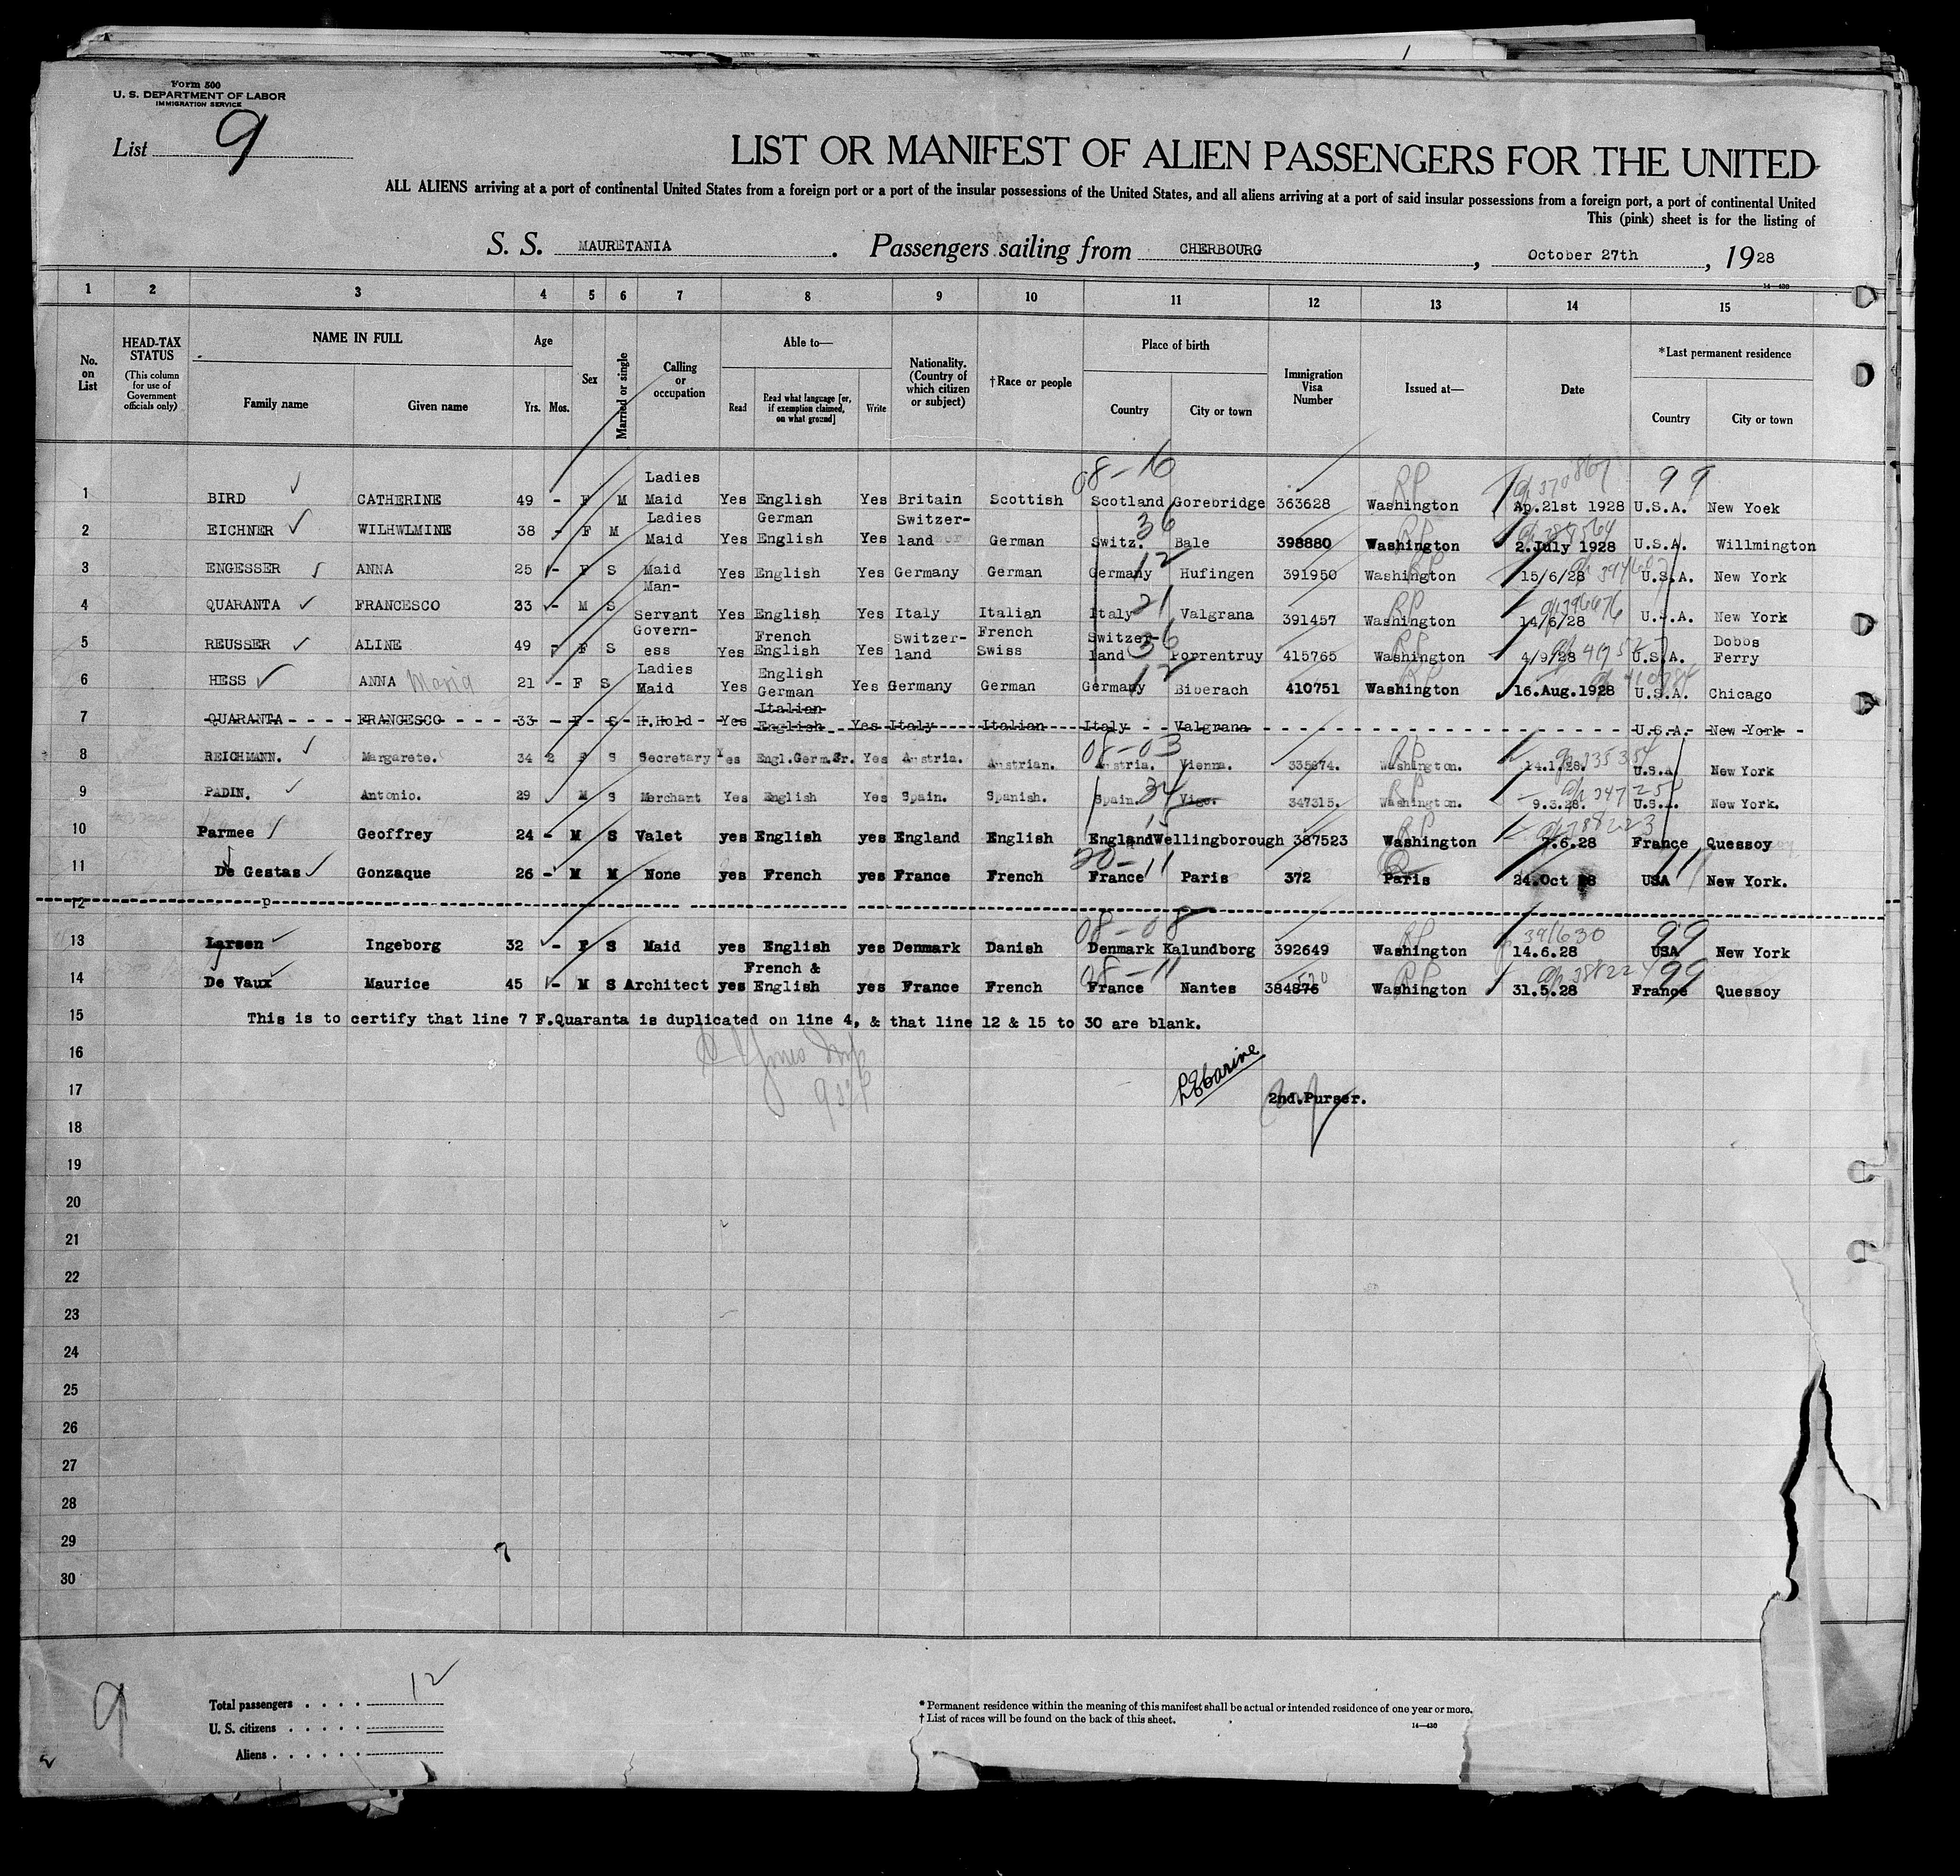 Form 500
U. S. DEPARTMENT OF LABOR
IMMIGRATION SERVICE
List 9
LIST OR MANIFEST OF ALIEN PASSENGERS FOR THE UNITED
ALL ALIENS arriving at a port of continental United States from a foreign port or a port of the insular possessions of the United States, and all aliens arriving at a port of said insular possessions from a foreign port, a port of continental United
This (pink) sheet is for the listing of
S. S. MAURETANIA. Passengers sailing from CHERBOURG, October 27th, 1928
14—430
1 2 3 4 5 6 7 8 9 10 11 12 13 14 15
No. on List
HEAD-TAX STATUS (This column for use of Government officials only)
NAME IN FULL Family name Given name
Age Yrs. Mos.
Sex
Married or single
Calling or occupation
Able to— Read Read what language [or, if exemption claimed, on what ground] Write
Nationality. (Country of which citizen or subject)
†Race or people
Place of birth Country City or town
Immigration Visa Number
Issued at—
Date
*Last permanent residence Country City or town
1 BIRD CATHERINE 49 - F M Ladies Maid Yes English Yes Britain Scottish 08-16 Scotland Gorebridge 363628 Washington Ap.21st 1928 99 U.S.A. New Yoek
2 EICHNER WILHWLMINE 38 - F M Ladies Maid Yes German English Yes Switzer-land German Switz. 36 Bale 398880 Washington 2.July 1928 U.S.A. Willmington
3 ENGESSER ANNA 25 - F S Maid Yes English Yes Germany German Germany 12 Hufingen 391950 Washington 15/6/28 U.S.A. New York
4 QUARANTA FRANCESCO 33 - M S Man-Servant Yes English Yes Italy Italian Italy 21 Valgrana 391457 Washington 14/6/28 U.S.A. New York
5 REUSSER ALINE 49 - F S Govern-ess Yes French English Yes Switzer-land French Swiss Switzer-land 36 Porrentruy 415765 Washington 4/9/28 U.S.A. Dobbs Ferry
6 HESS ANNA Maria 21 - F S Ladies Maid Yes English German Yes Germany German Germany 12 Biberach 410751 Washington 16.Aug.1928 U.S.A. Chicago
7 QUARANTA FRANCESCO 33 - F S H.Hold Yes Italian English Yes Italy Italian Italy Valgrana U.S.A. New York
8 REICHMANN. Margarete. 34 2 F S Secretary Yes Engl.Germ.Fr. Yes Austria. Austrian. 08-03 Austria. Vienna. 335674. Washington. 14.1.28. U.S.A. New York
9 PADIN. Antonio. 29 M S Merchant Yes English Yes Spain. Spanish. Spain. 34 Vigo. 347315. Washington. 9.3.28. U.S.A. New York.
10 Parmee Geoffrey 24 - M S Valet yes English yes England English England Wellingborough 387523 Washington 7.6.28 France Quessoy
11 De Gestas Gonzaque 26 - M M None yes French yes France French 20-11 France Paris 372 Paris 24.Oct 28 USA New York.
12 p
13 Larsen Ingeborg 32 - F S Maid yes English yes Denmark Danish 08-08 Denmark Kalundborg 392649 Washington 391630 14.6.28 99 USA New York
14 De Vaux Maurice 45 - M S Architect yes French & English yes France French 08-11 France Nantes 384876 Washington 31.5.28 99 France Quessoy
15 This is to certify that line 7 F.Quaranta is duplicated on line 4, & that line 12 & 15 to 30 are blank.
16
17 2nd.Purser.
18
19
20
21
22
23
24
25
26
27
28
29
30
9
Total passengers . . . . 12
U. S. citizens . . . . .
Aliens . . . . . .
* Permanent residence within the meaning of this manifest shall be actual or intended residence of one year or more.
† List of races will be found on the back of this sheet.
14—430